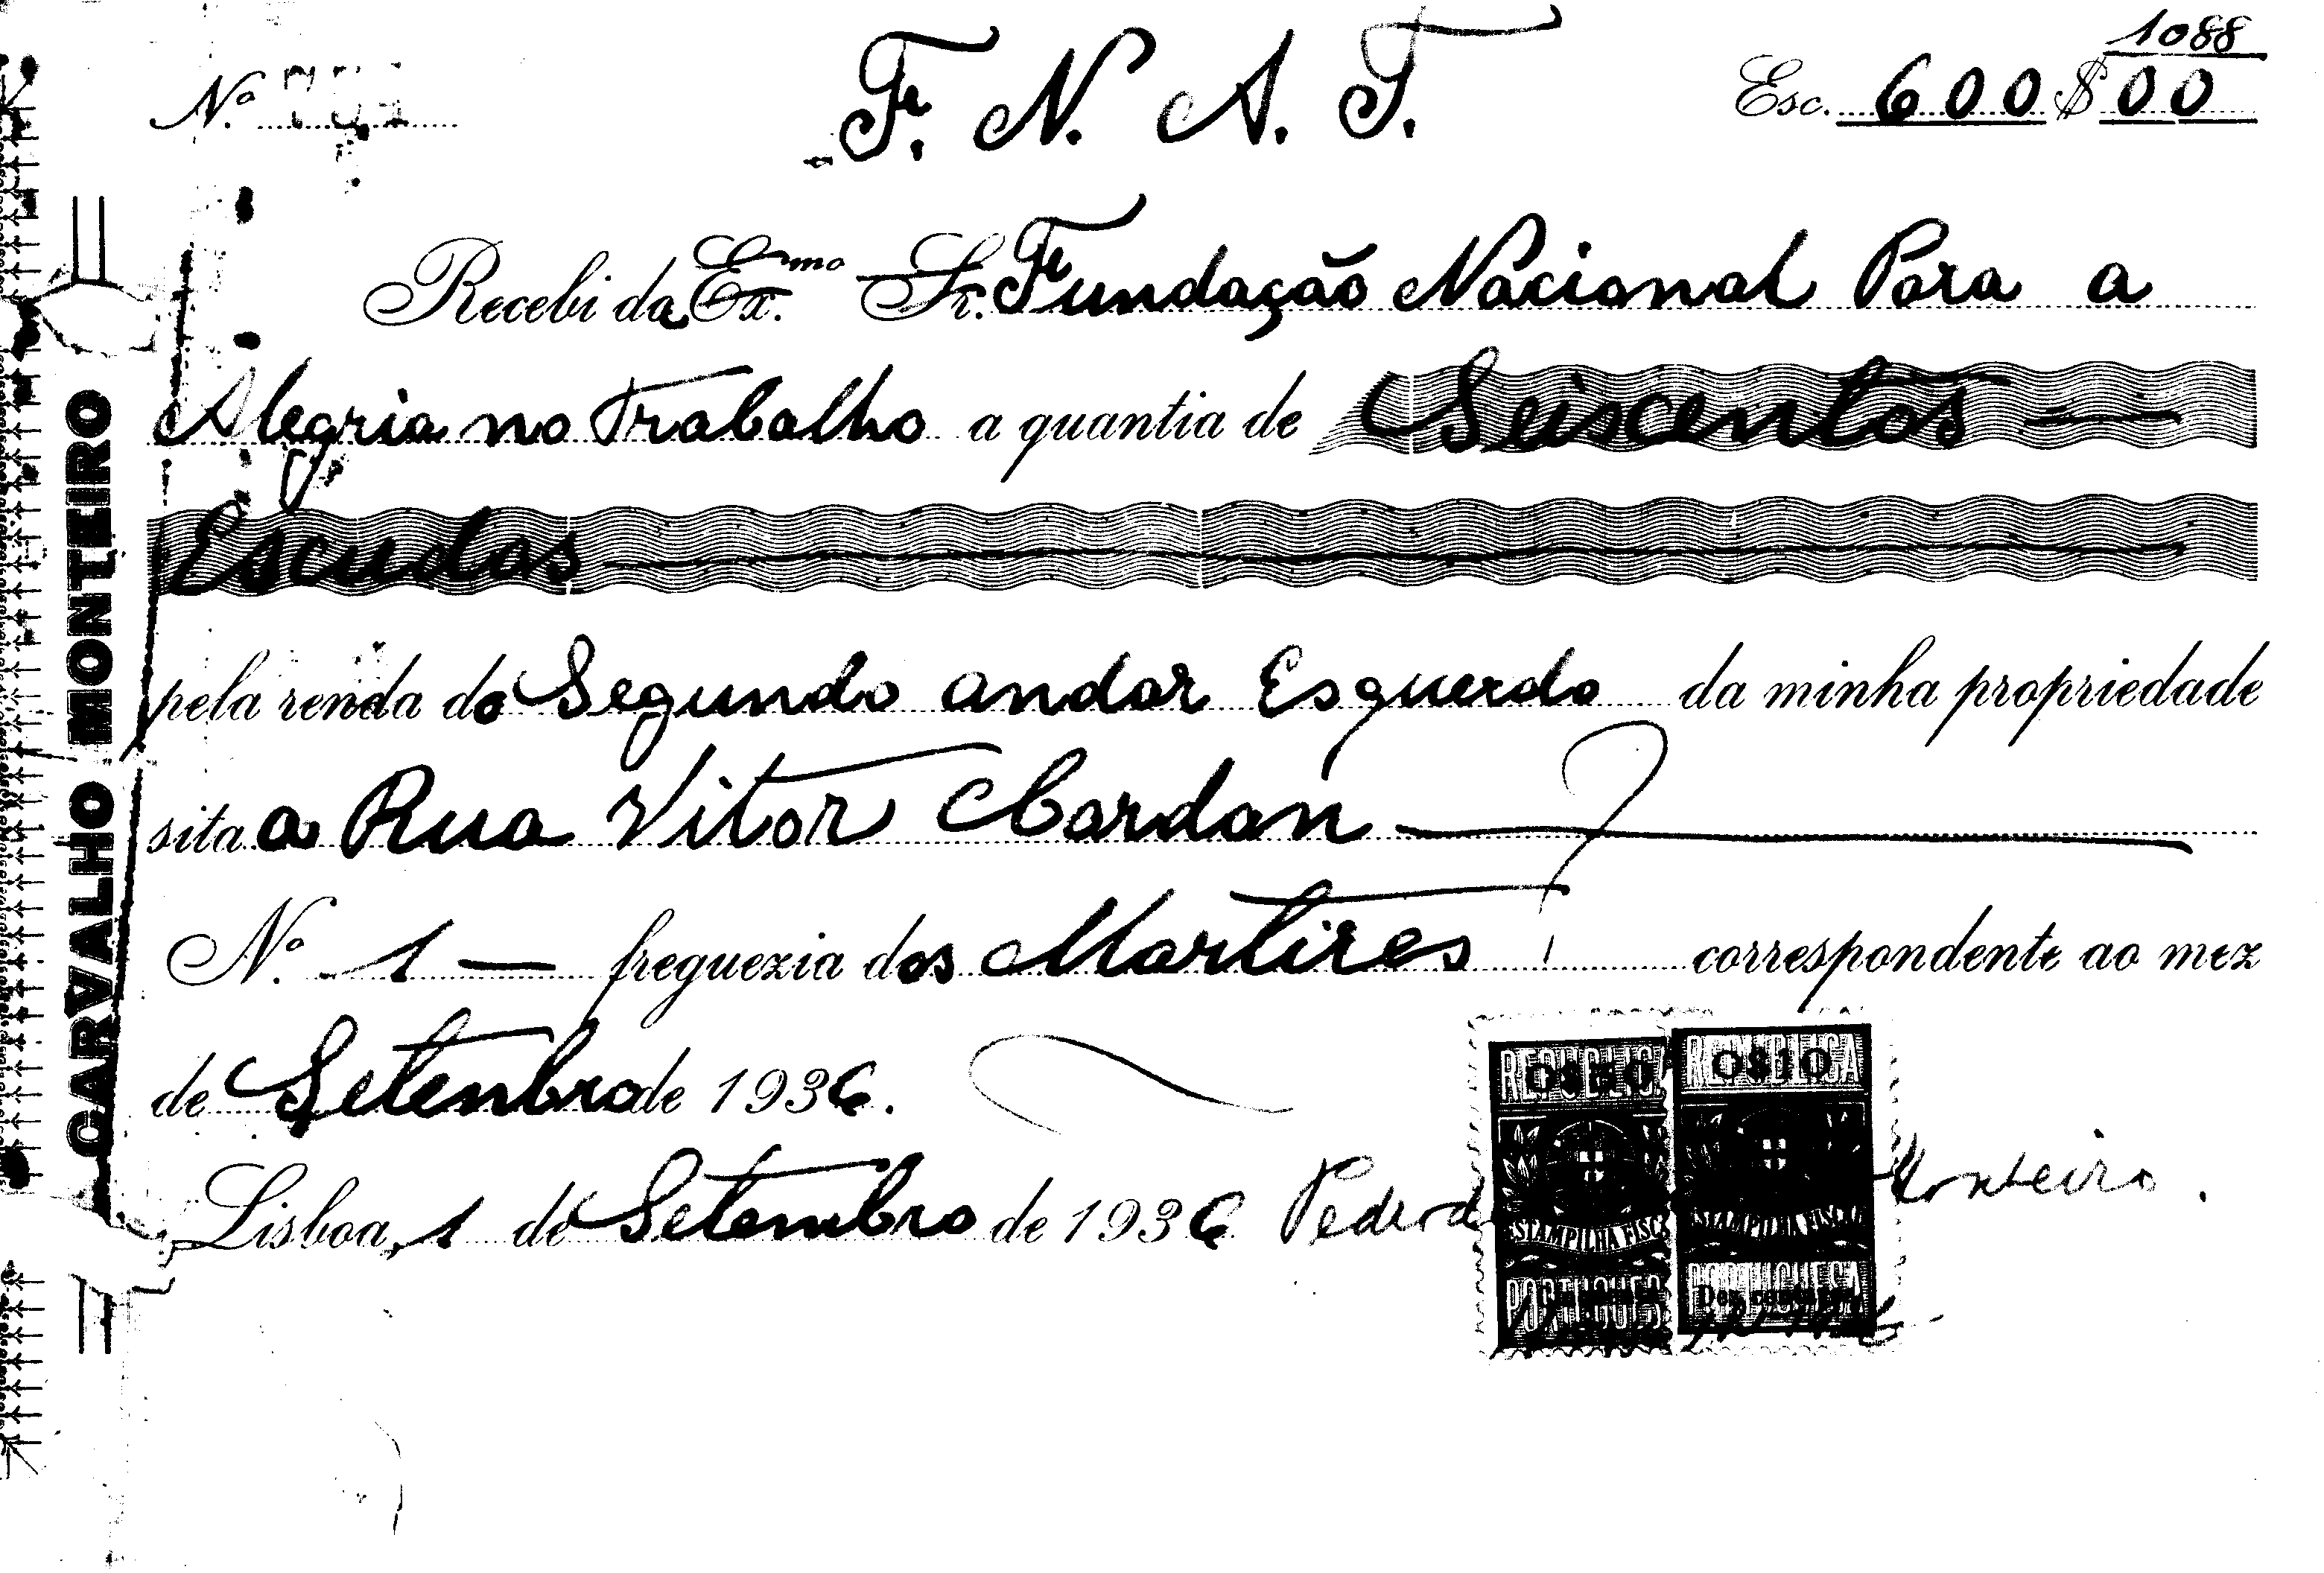 1088
Nº
F. N. A. T.
Esc. 600$00
Recebi da Ex.mo Sr. Fundação Nacional Para a
Alegria no Trabalho a quantia de Seiscentos —
Escudos
pela renda do Segundo andar Esquerdo da minha propriedade
sita a Rua Vitor Cordon
Nº 1 — freguezia dos Martires correspondente ao mez
de Setenbro de 1936.
Lisboa, 1 de Setembro de 1936 Pedro d Monteiro.
CARVALHO MONTEIRO
REPUBLICA 0$10
ESTAMPILHA FISCAL
ESTAMPILHA FISCAL
PORTUGUESA
Dez centavos